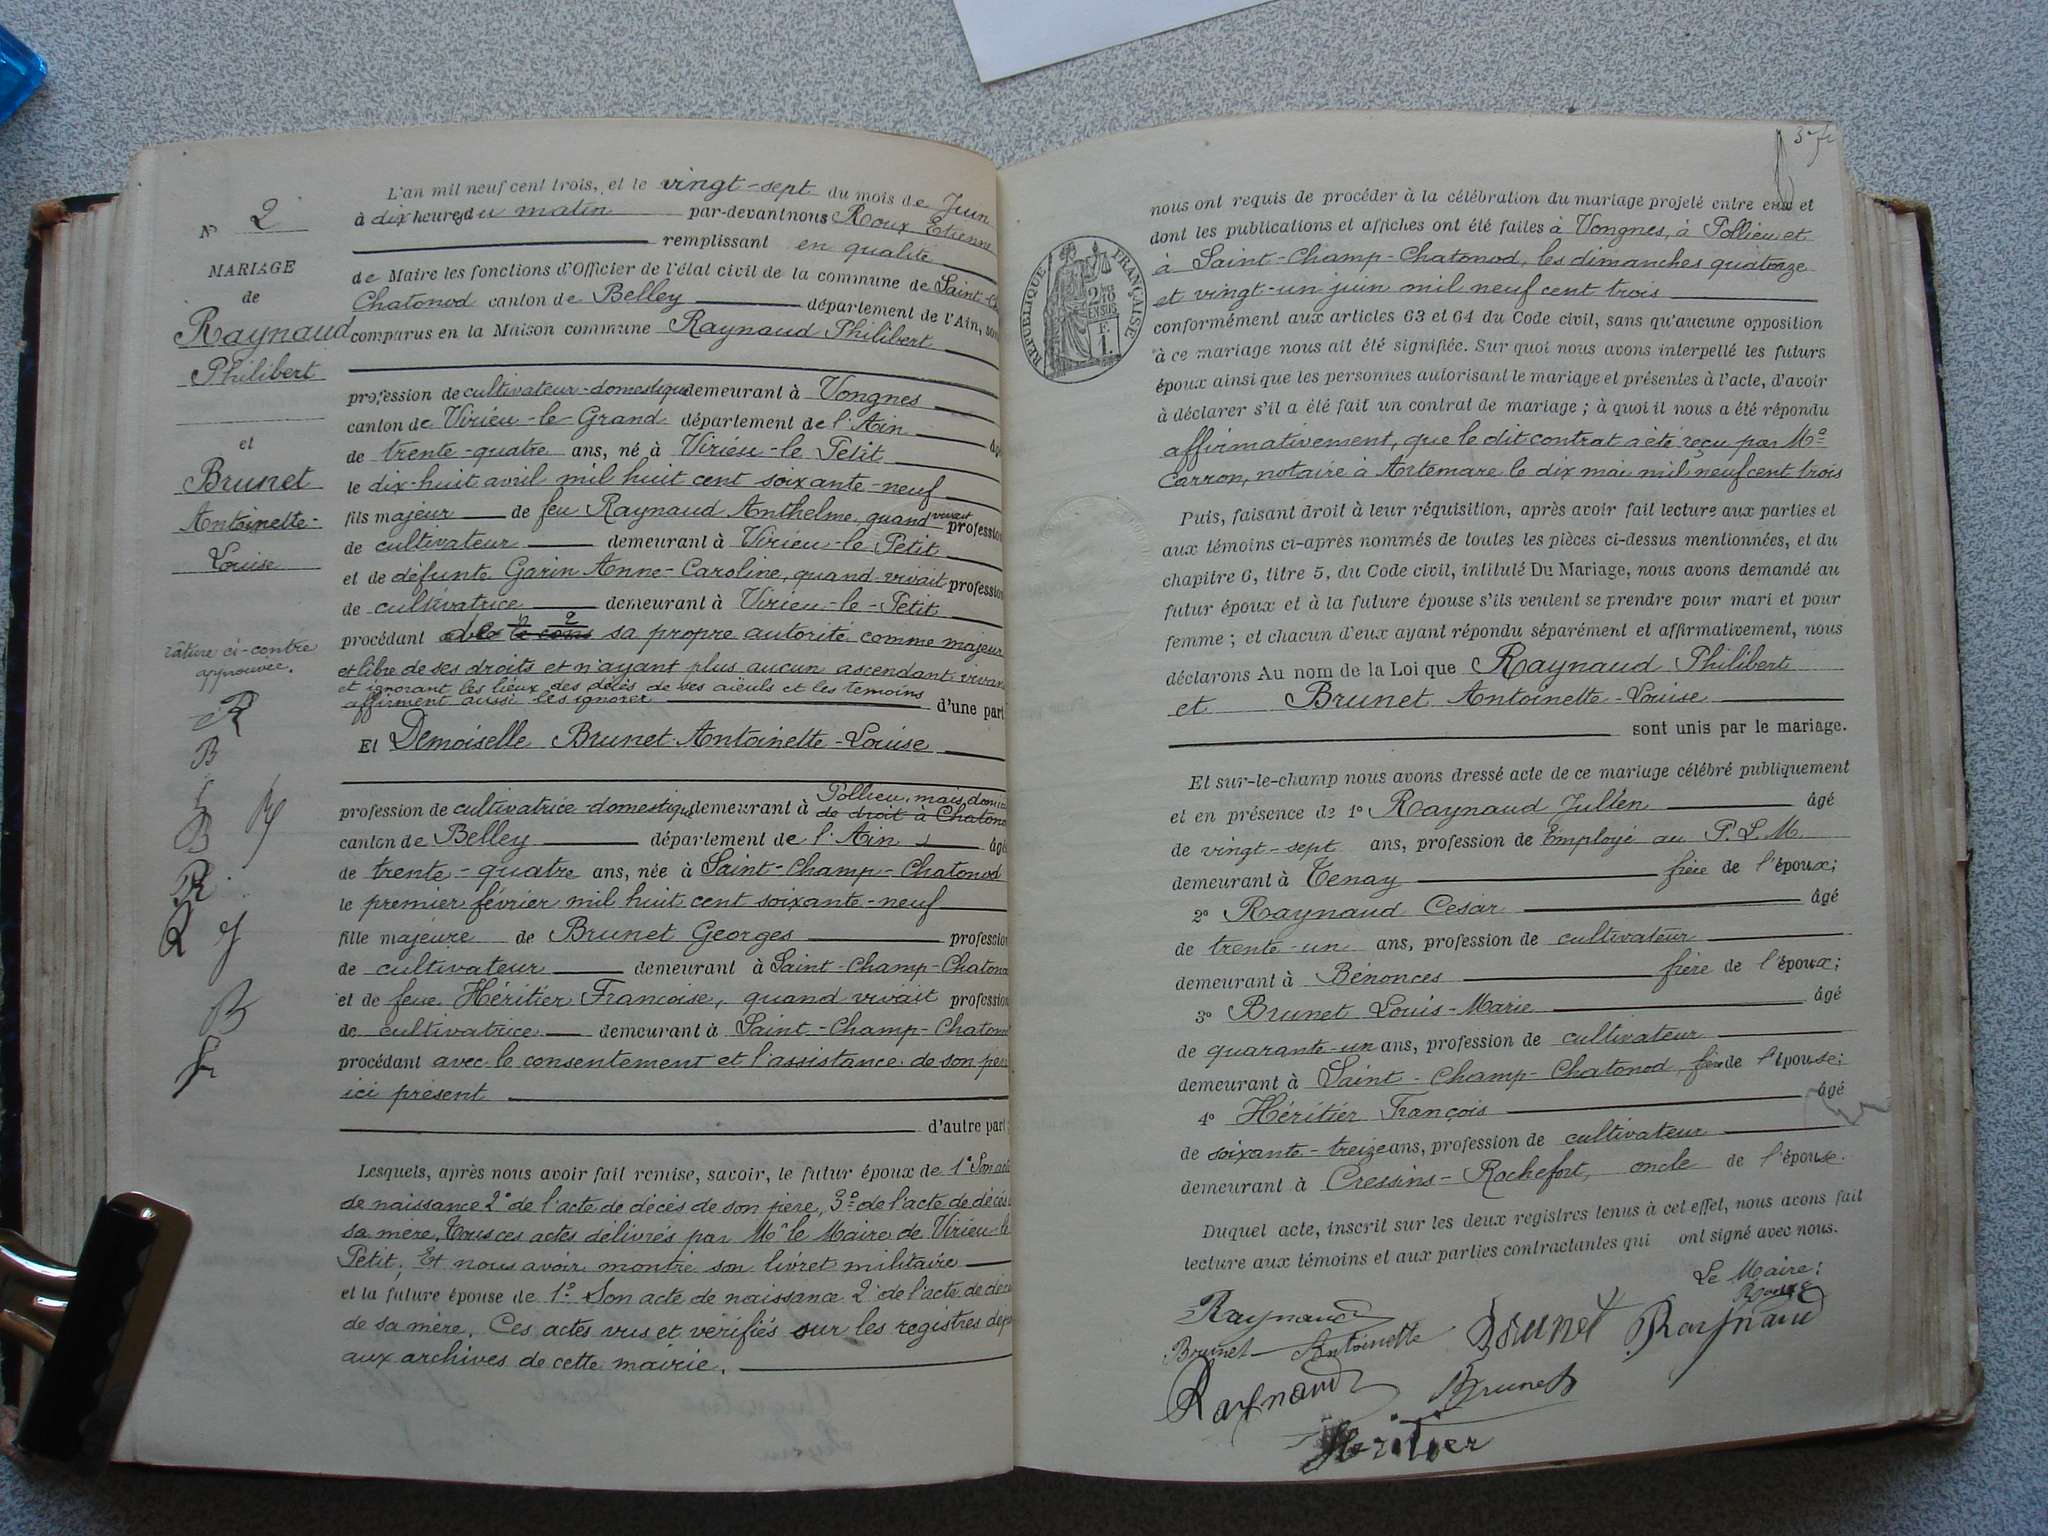 N° 2
MARIAGE
de
Raynaud
Philibert
et
Brunet
Antoinette-
Louise
rature ci-contre
approuvée.
R
B
B
R
B
L'an mil neuf cent trois, et le vingt-sept du mois de Juin
à dix heures du matin par-devant nous Roux Etienne
remplissant en qualité
de Maire les fonctions d'Officier de l'état civil de la commune de Saint-Ch
Chatonod canton de Belley département de l'Ain, son
comparus en la Maison commune Raynaud Philibert
profession de cultivateur-domestique demeurant à Vongnes
canton de Virieu-le-Grand département de l'Ain âgé
de trente-quatre ans, né à Virieu-le Petit
le dix-huit avril mil huit cent soixante-neuf
fils majeur de feu Raynaud Anthelme, quand vivait profession
de cultivateur demeurant à Virieu-le Petit
et de défunte Garin Anne-Caroline, quand vivait profession
de cultivatrice demeurant à Virieu-le-Petit
procédant de sa propre autorité comme majeur
et libre de ses droits et n'ayant plus aucun ascendant vivant
et ignorant les lieux des décès de ses aïeuls et les témoins
affirment aussi les ignorer d'une part
Et Demoiselle Brunet Antoinette-Louise
profession de cultivatrice-domestique demeurant à Pollieu, mais domici
de droit à Chatonod
canton de Belley département de l'Ain âgé
de trente-quatre ans, née à Saint-Champ-Chatonod
le premier février mil huit cent soixante-neuf
fille majeure de Brunet Georges profession
de cultivateur demeurant à Saint-Champ-Chatonod
et de feue Héritier Françoise, quand vivait profession
de cultivatrice demeurant à Saint-Champ-Chatonod
procédant avec le consentement et l'assistance de son père
ici présent
d'autre part;
Lesquels, après nous avoir fait remise, savoir, le futur époux de 1° Son acte
de naissance 2° de l'acte de décès de son père, 3° de l'acte de décès
sa mère, Tous ces actes délivrés par Mr le Maire de Virieu-le
Petit. Et nous avoir montré son livret militaire
et la future épouse de 1° Son acte de naissance 2° de l'acte de décè
de sa mère. Ces actes vus et vérifiés sur les registres dépo
aux archives de cette mairie.
3
nous ont requis de procéder à la célébration du mariage projeté entre eux et
dont les publications et affiches ont été faites à Vongnes, à Pollieu et
à Saint-Champ-Chatonod, les dimanches quatorze
et vingt-un juin mil neuf cent trois
conformément aux articles 63 et 64 du Code civil, sans qu'aucune opposition
à ce mariage nous ait été signifiée. Sur quoi nous avons interpellé les futurs
époux ainsi que les personnes autorisant le mariage et présentes à l'acte, d'avoir
à déclarer s'il a été fait un contrat de mariage ; à quoi il nous a été répondu
affirmativement, que le dit contrat a été reçu par Me
Carron, notaire à Artemare le dix mai mil neuf cent trois
RÉPUBLIQUE FRANÇAISE
2 10mes
EN SUS
F.
1.
Puis, faisant droit à leur réquisition, après avoir fait lecture aux parties et
aux témoins ci-après nommés de toutes les pièces ci-dessus mentionnées, et du
chapitre 6, titre 5, du Code civil, intitulé Du Mariage, nous avons demandé au
futur époux et à la future épouse s'ils veulent se prendre pour mari et pour
femme ; et chacun d'eux ayant répondu séparément et affirmativement, nous
déclarons Au nom de la Loi que Raynaud Philibert
et Brunet Antoinette-Louise
sont unis par le mariage.
Et sur-le-champ nous avons dressé acte de ce mariage célébré publiquement
et en présence de 1° Raynaud Julien âgé
de vingt-sept ans, profession de Employé au P.L.M.
demeurant à Tenay frère de l'époux;
2° Raynaud Cesar âgé
de trente-un ans, profession de cultivateur
demeurant à Bénonces frère de l'époux;
3° Brunet Louis-Marie âgé
de quarante-un ans, profession de cultivateur
demeurant à Saint-Champ-Chatonod, frère de l'épouse;
4° Héritier François âgé
de soixante-treize ans, profession de cultivateur
demeurant à Cressins-Rochefort, oncle de l'épouse.
Duquel acte, inscrit sur les deux registres tenus à cet effet, nous avons fait
lecture aux témoins et aux parties contractantes qui ont signé avec nous.
Le Maire:
Roux E
Raynaud
Brunet Antoinette Brunet Raynaud
Raynaud Brunet
Héritier